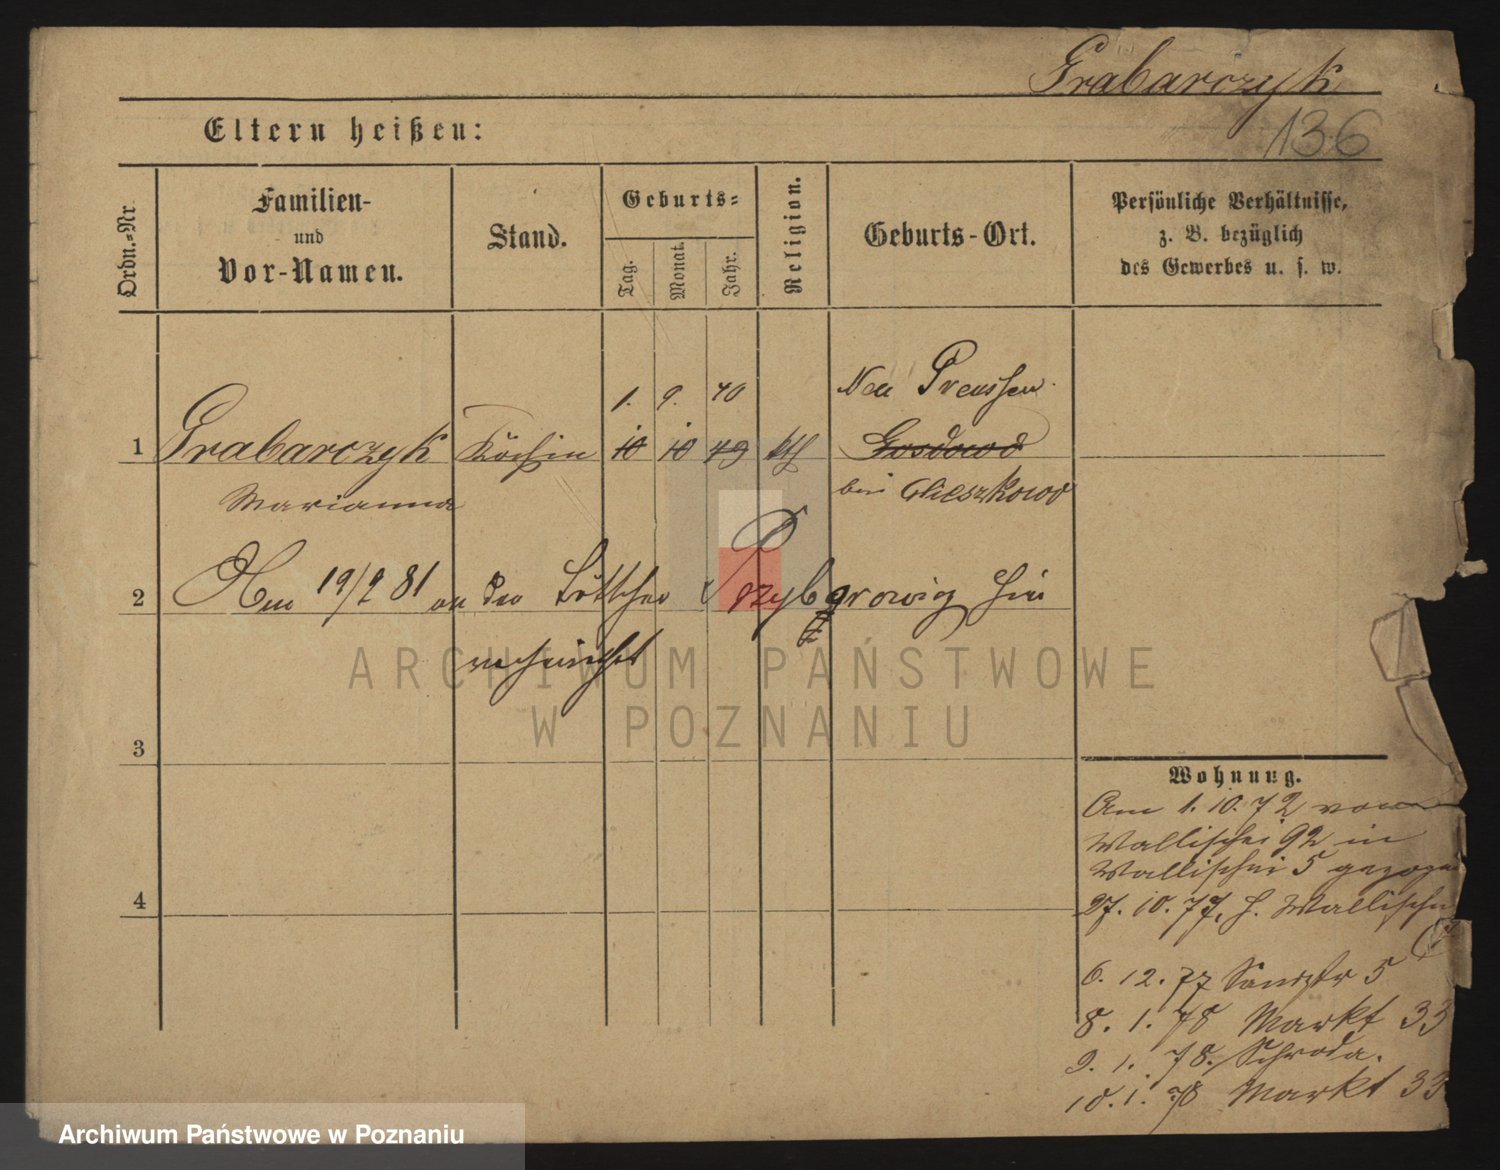 Grabarczyk
136
Eltern heißen:
Ordn.-Nr.
Familien-
und
Vor-Namen.
Stand.
Geburts-
Tag.
Monat.
Jahr.
Religion.
Geburts-Ort.
Persönliche Verhältnisse,
z. B. bezüglich
des Gewerbes u. s. w.
1. 9. 40 Neu Preussen
1 Grabarczyk Köchin 10 10 49 kth Gosdowo
Marianna bei Mieszkowo
2 Am 19/9 81 an den Böttcher Przybyrowicz hier
verheirathet
ARCHIWUM PAŃSTWOWE
W POZNANIU
3
4
Wohnung.
Am 1. 10. 72 von
Wallischei 92 in
Wallischei 5 gezogen
27. 10. 77. h. Wallischei
6. 12. 77 Sandstr 5
8. 1. 78 Markt 33
9. 1. 78. Schroda.
10. 1. 78 Markt 33
Archiwum Państwowe w Poznaniu